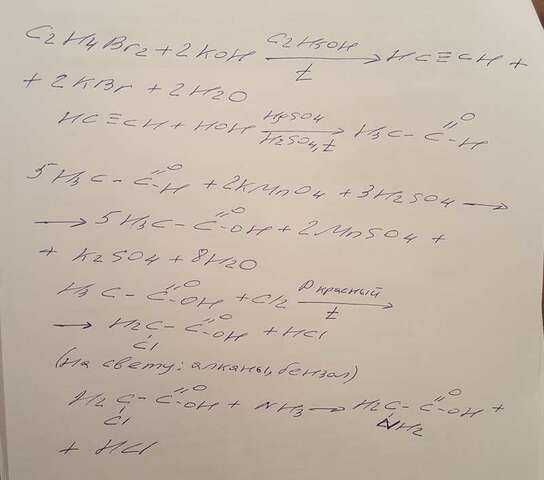 C2H4Br2 + 2KOH C2H5OH t → HC≡CH +
+ 2KBr + 2H2O
HC≡CH + HOH HgSO4 H2SO4, t → H3C - C =O -H
5H3C - C =O -H + 2KMnO4 + 3H2SO4 →
→ 5H3C - C =O -OH + 2MnSO4 +
+ K2SO4 + 8H2O
H3C - C =O -OH + Cl2 P красный t →
→ H2C - C =O -OH + HCl
Cl
(на свету: алканы, бензол)
H2C - C =O -OH + NH3 → H2C - C =O -OH +
Cl NH2
+ HCl